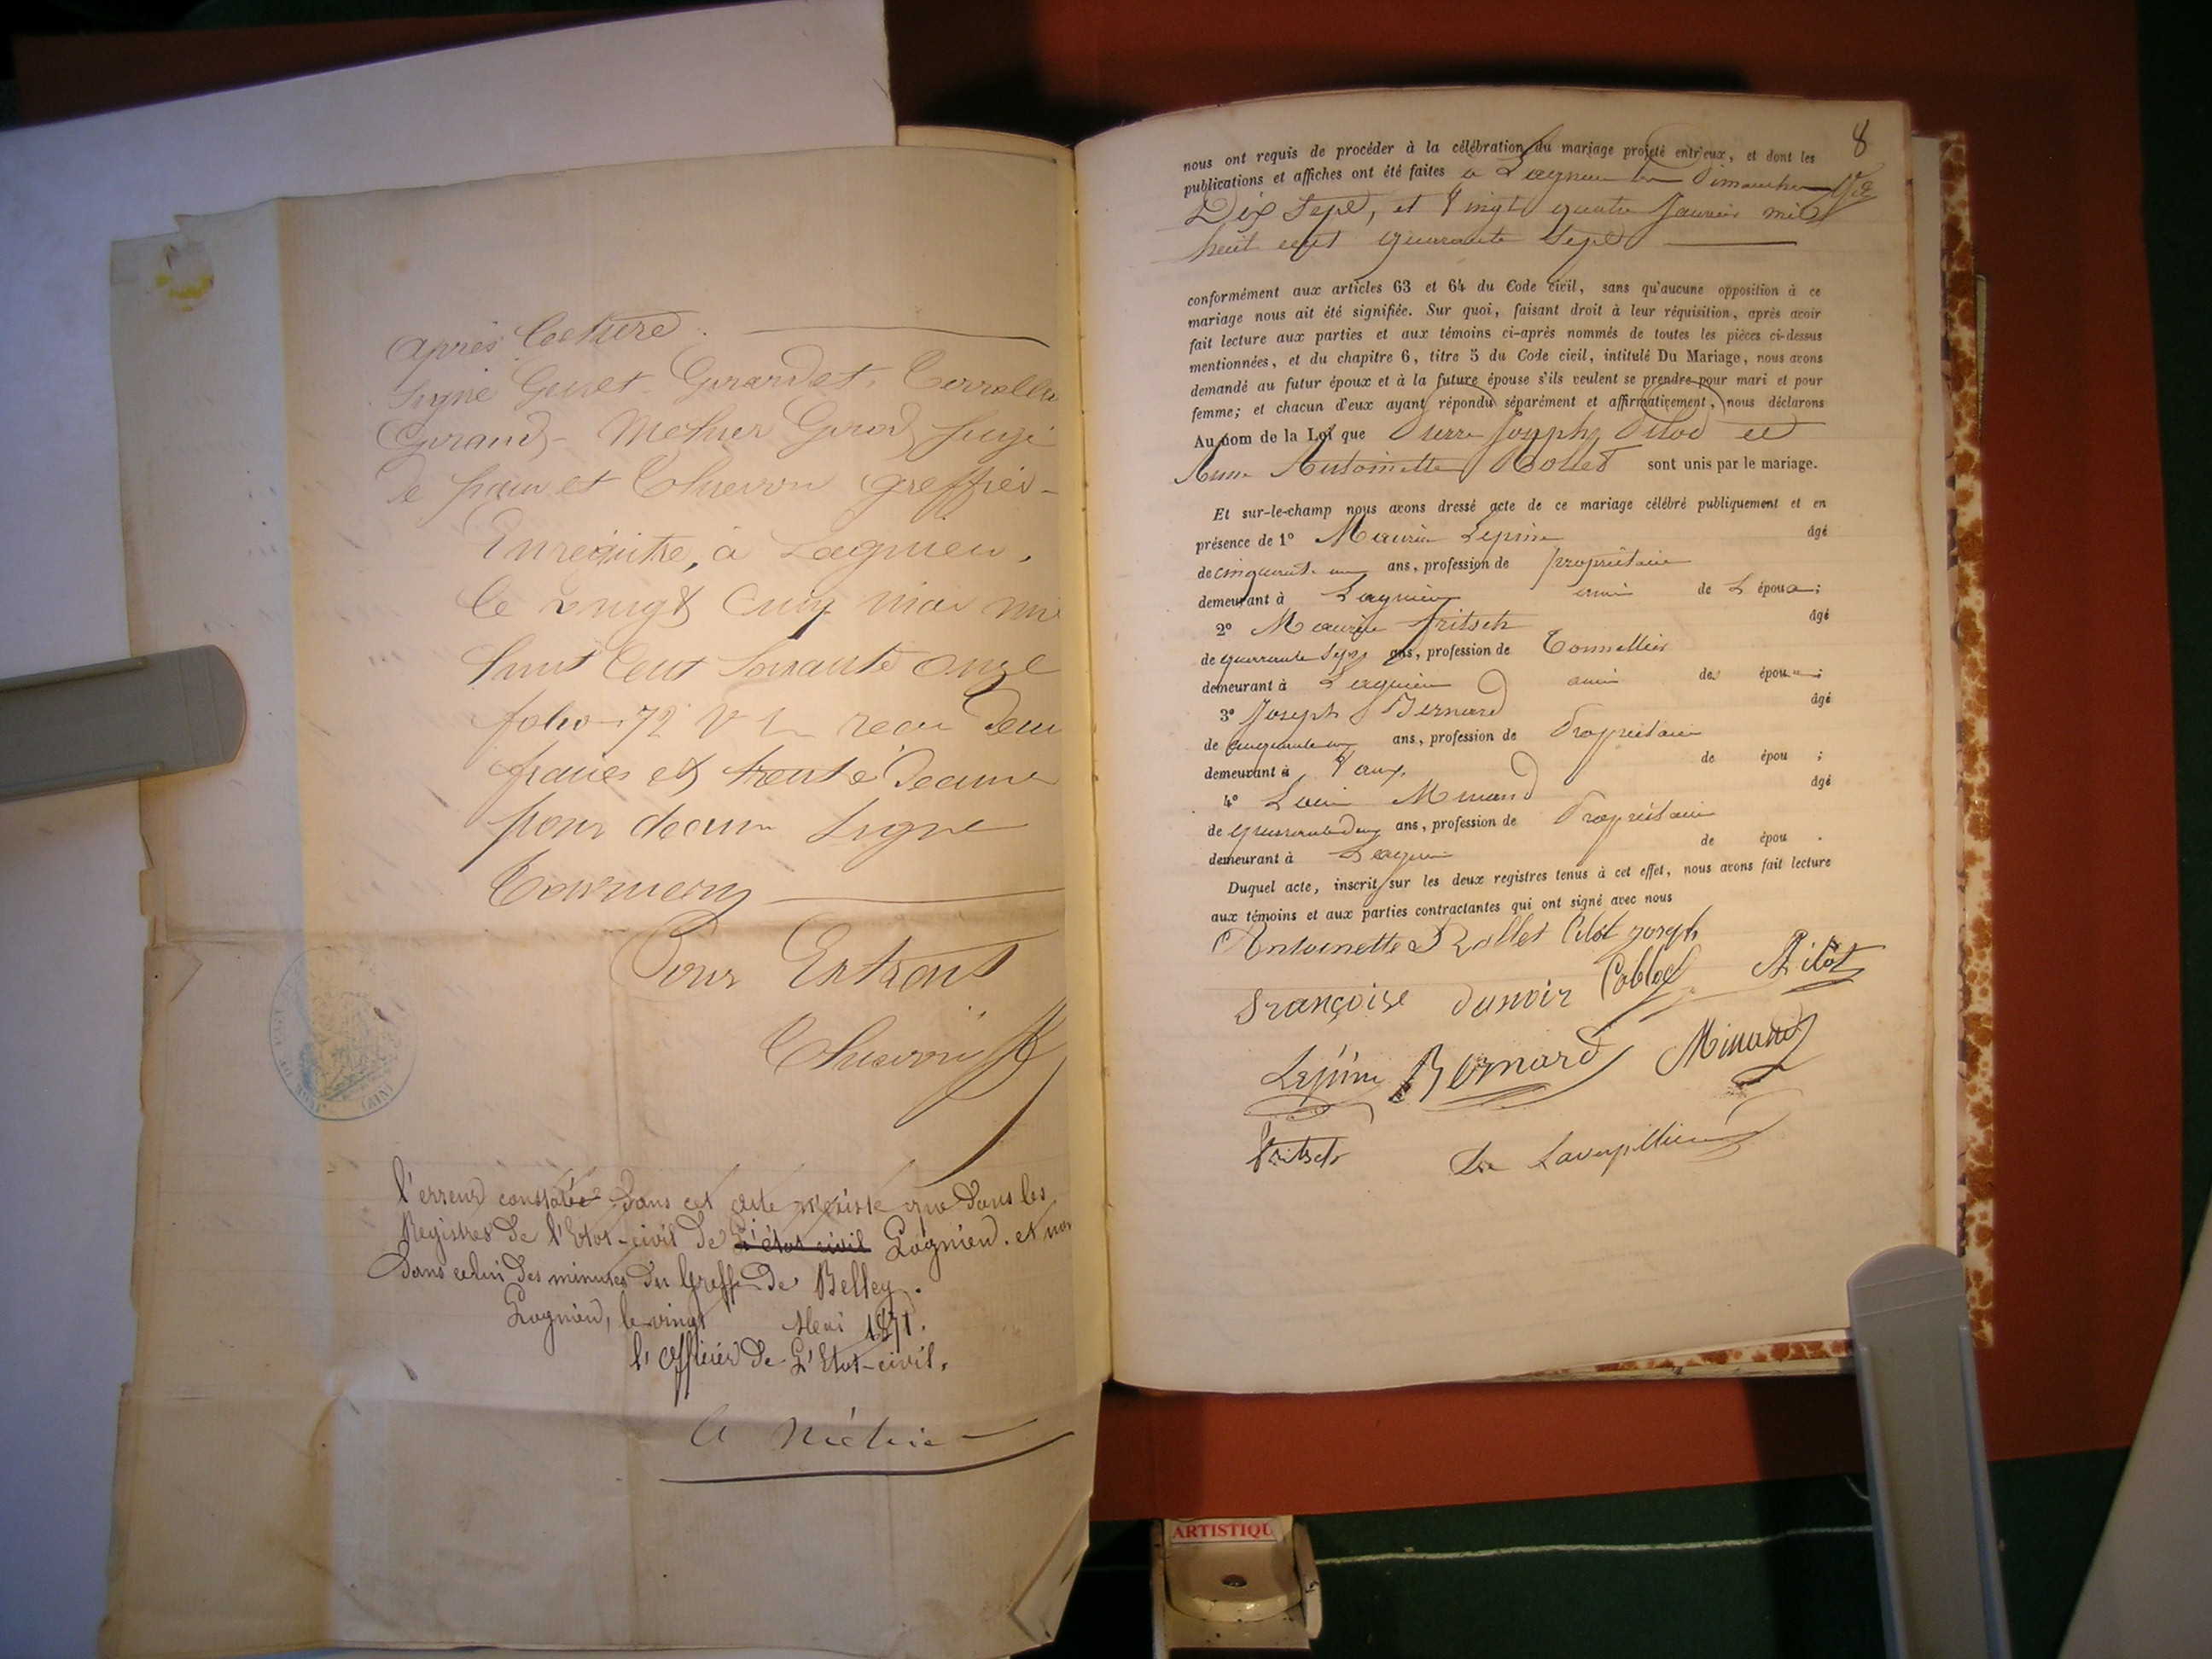 après lecture.
signé Genet. Girardet.
Curand - Methier Girod, juge
de paix et Thuevon greffier-
Enregistré, à Lagnieu,
le vingt cinq mai mil
huit cent soixante onze
folio 72 V reçu deux
francs et trente decime
pour decime signé
Pour Extrait
l'erreur constatée dans cet acte n'existe que dans les
Registres de l'Etat-civil de L'état civil Lagnieu. et non
dans celui des minutes du Greffe de Belley.
Lagnieu, le vingt Mai 1871.
l'officier de L'Etat-civil.
8
nous ont requis de procéder à la célébration du mariage projeté entr'eux, et dont les
publications et affiches ont été faites à Lagnieu les Dimanches
Dix Sept, et Vingt quatre Janvier mil
huit cent quarante Sept
conformément aux articles 63 et 64 du Code civil, sans qu'aucune opposition à ce
mariage nous ait été signifiée. Sur quoi, faisant droit à leur réquisition, après avoir
fait lecture aux parties et aux témoins ci-après nommés de toutes les pièces ci-dessus
mentionnées, et du chapitre 6, titre 5 du Code civil, intitulé Du Mariage, nous avons
demandé au futur époux et à la future épouse s'ils veulent se prendre pour mari et pour
femme; et chacun d'eux ayant répondu séparément et affirmativement, nous déclarons
Au nom de la Loi que Pierre Joseph Pilod et
Anne Antoinette Rollet sont unis par le mariage.
Et sur-le-champ nous avons dressé acte de ce mariage célébré publiquement et en
présence de 1° Maurice Lepine âgé
de cinquante un ans, profession de propriétaire
demeurant à Lagnieu ami de L époux;
2° Maurice Fritsch âgé
de quarante sept ans, profession de Tonnellier
demeurant à Lagnieu ami des époux;
3° Joseph Bernard âgé
de cinquante ans, profession de Propriétaire
demeurant à Vaux, de épou ;
4° Louis Minand âgé
de quarante deux ans, profession de Propriétaire
demeurant à Lagnieu de épou .
Duquel acte, inscrit sur les deux registres tenus à cet effet, nous avons fait lecture
aux témoins et aux parties contractantes qui ont signé avec nous
Antoinette Rollet Pilot joseph
Françoise dunoir Pilot
Lepine Bernard Minand
Fritsch
ARTISTIQU